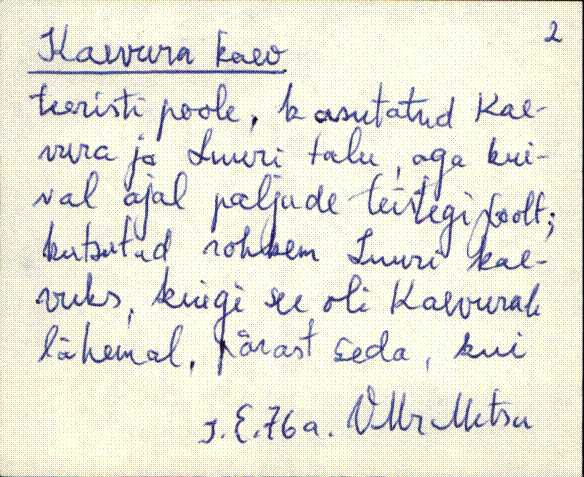 2
Kaevura kaev
teeristi poole, kasutatud Kae-
vura ja Luuri talu, aga kui-
val ajal paljude teistegi poolt;
kutsutud rohkem Luuri kae-
vuks, kuigi see oli Kaevurale
lähemal. Pärast seda, kui
J.E.76a. VMr Metsu